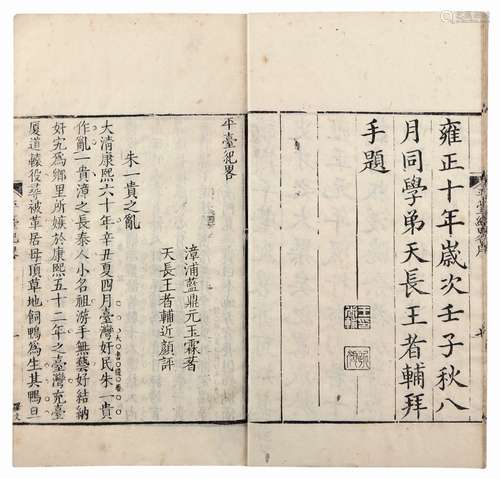 雍正十年歲次壬子秋八
月同學弟天長王者輔拜
手題
平臺紀畧
漳浦藍鼎元玉霖著
天長王者輔近顏評
朱一貴之亂
大清康熙六十年辛丑夏四月臺灣奸民朱一貴
作亂一貴漳之長泰人小名祖游手無藝好結納
奸宄為鄉里所嫉於康熙五十二年之臺灣充臺
厦道轅役尋被革居母頂草地飼鴨為生其鴨旦